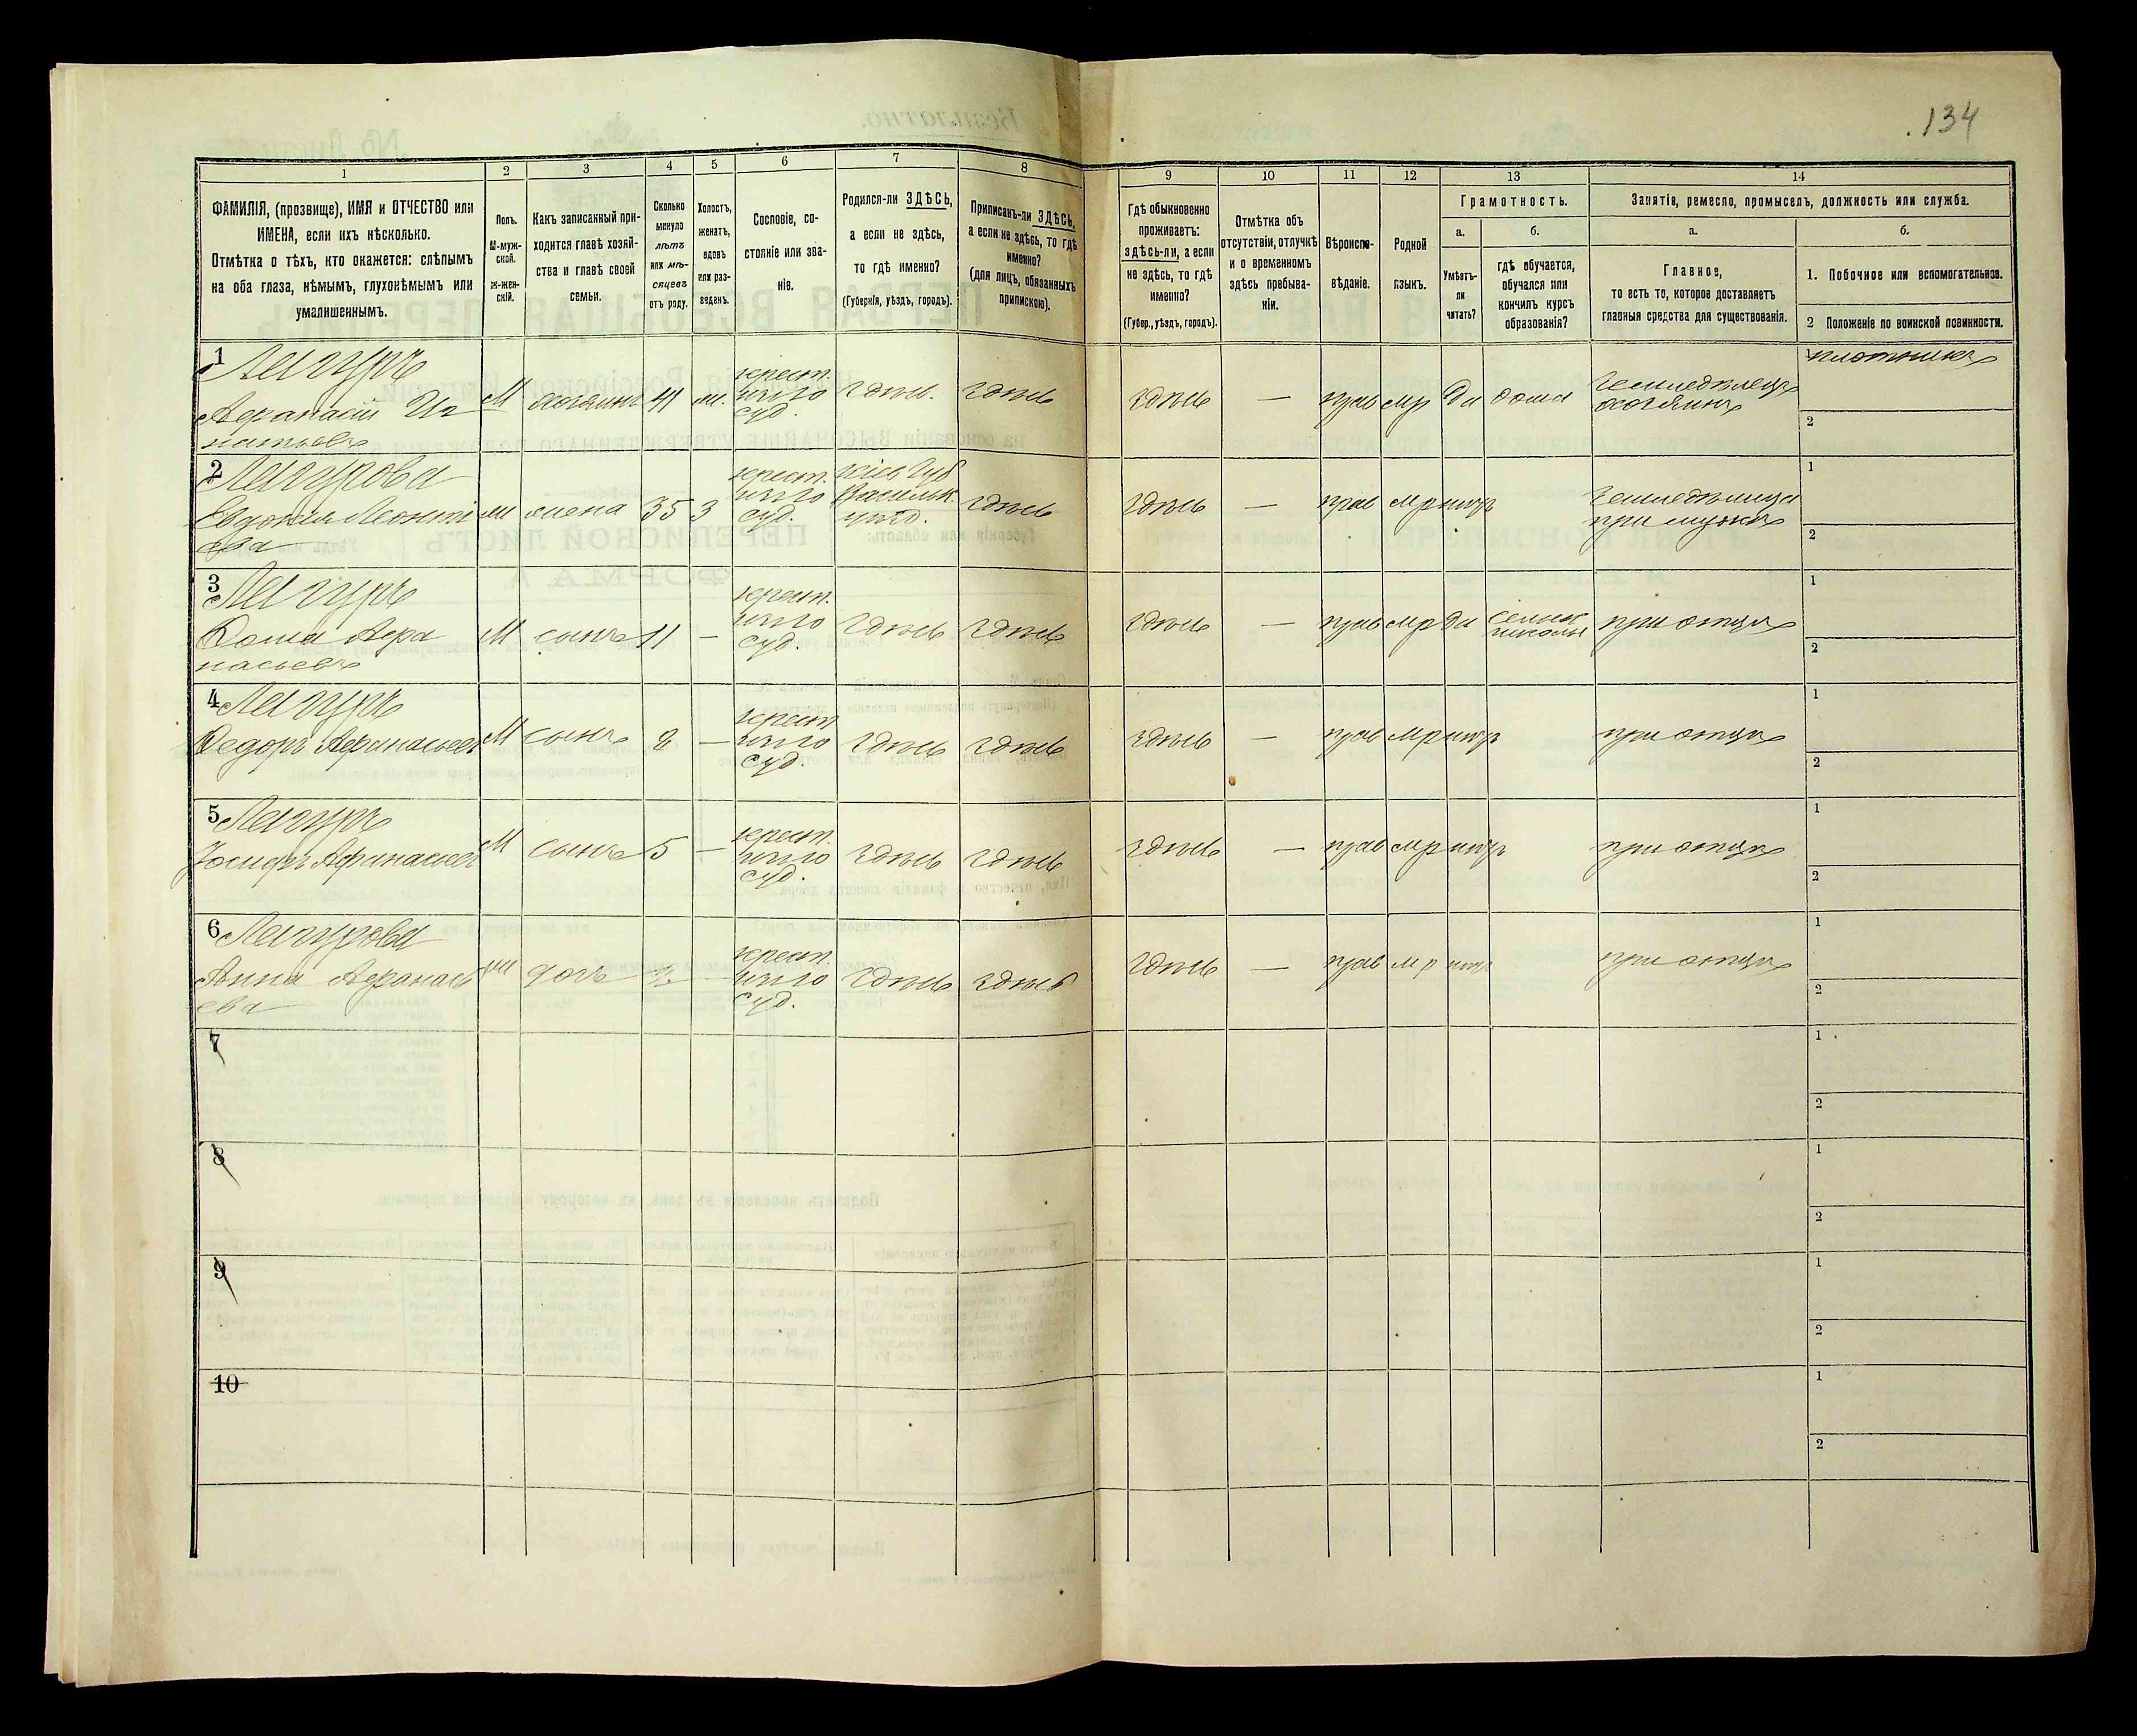 134
1
2
3
4
5
6
7
8
9
10
11
12
13
14
ФАМИЛІЯ, (прозвище), ИМЯ и ОТЧЕСТВО или
ИМЕНА, если ихъ нѣсколько.
Отмѣтка о тѣхъ, кто окажется: слѣпымъ
на оба глаза, нѣмымъ, глухонѣмымъ или
умалишеннымъ.
Полъ.
М-муж-
ской.
Ж-жен-
скій.
Какъ записанный при-
ходится главѣ хозяй-
ства и главѣ своей
семьи.
Сколько
минуло
лѣтъ
или мѣ-
сяцевъ
отъ роду.
Холостъ,
женатъ,
вдовъ
или раз-
веденъ.
Сословіе, со-
стояніе или зва-
ніе.
Родился-ли ЗДѢСЬ,
а если не здѣсь,
то гдѣ именно?
(Губернія, уѣздъ, городъ).
Приписанъ-ли ЗДѢСЬ,
а если не здѣсь, то гдѣ
именно?
(для лицъ, обязанныхъ
припискою).
Гдѣ обыкновенно
проживаетъ:
здѣсь-ли, а если
не здѣсь, то гдѣ
именно?
(Губер., уѣздъ, городъ).
Отмѣтка объ
отсутствіи, отлучкѣ
и о временномъ
здѣсь пребыва-
ніи.
Вѣроиспо-
вѣданіе.
Родной
языкъ.
Грамотность.
а.
Умѣетъ-
ли
читать?
б.
гдѣ обучается,
обучался или
кончилъ курсъ
образованія?
Занятіе, ремесло, промыселъ, должность или служба.
а.
Главное,
то есть то, которое доставляетъ
главныя средства для существованія.
б.
1. Побочное или вспомогательное.
2 Положеніе по воинской повинности.
1
Аѳанасій Иг
натьевъ
М хозяинъ 41 ж. крест. суд. здѣсь. здѣсь здѣсь — прав мр да дома
земледѣлецъ
хозяинъ
плотникъ
2
2
Евдокія Леонті
ева
ж жена 35 З крест. суд.
Кіев Губ
Васильк.
уѣзд.
здѣсь здѣсь — прав мр нѣтъ
при мужѣ
1
2
3
Ѳома Аѳа
насьевъ
М сынъ 11 — крест. суд. здѣсь здѣсь здѣсь — прав мр да
школы
при отцѣ
1
2
4
Ѳедоръ Аѳанасьевъ
М сынъ 8 — крест суд. здѣсь здѣсь здѣсь — прав мр нѣтъ при отцѣ
1
2
5
Іосифъ Аѳанасьевъ
М сынъ 5 — крест. суд. здѣсь здѣсь здѣсь — прав мр нѣтъ при отцѣ
1
2
6
Анна Аѳанась
ева
ж дочь — крест. суд. здѣсь здѣсь здѣсь — прав мр нѣтъ при отцѣ
1
2
7
1
2
8
1
2
9
1
2
10
1
2